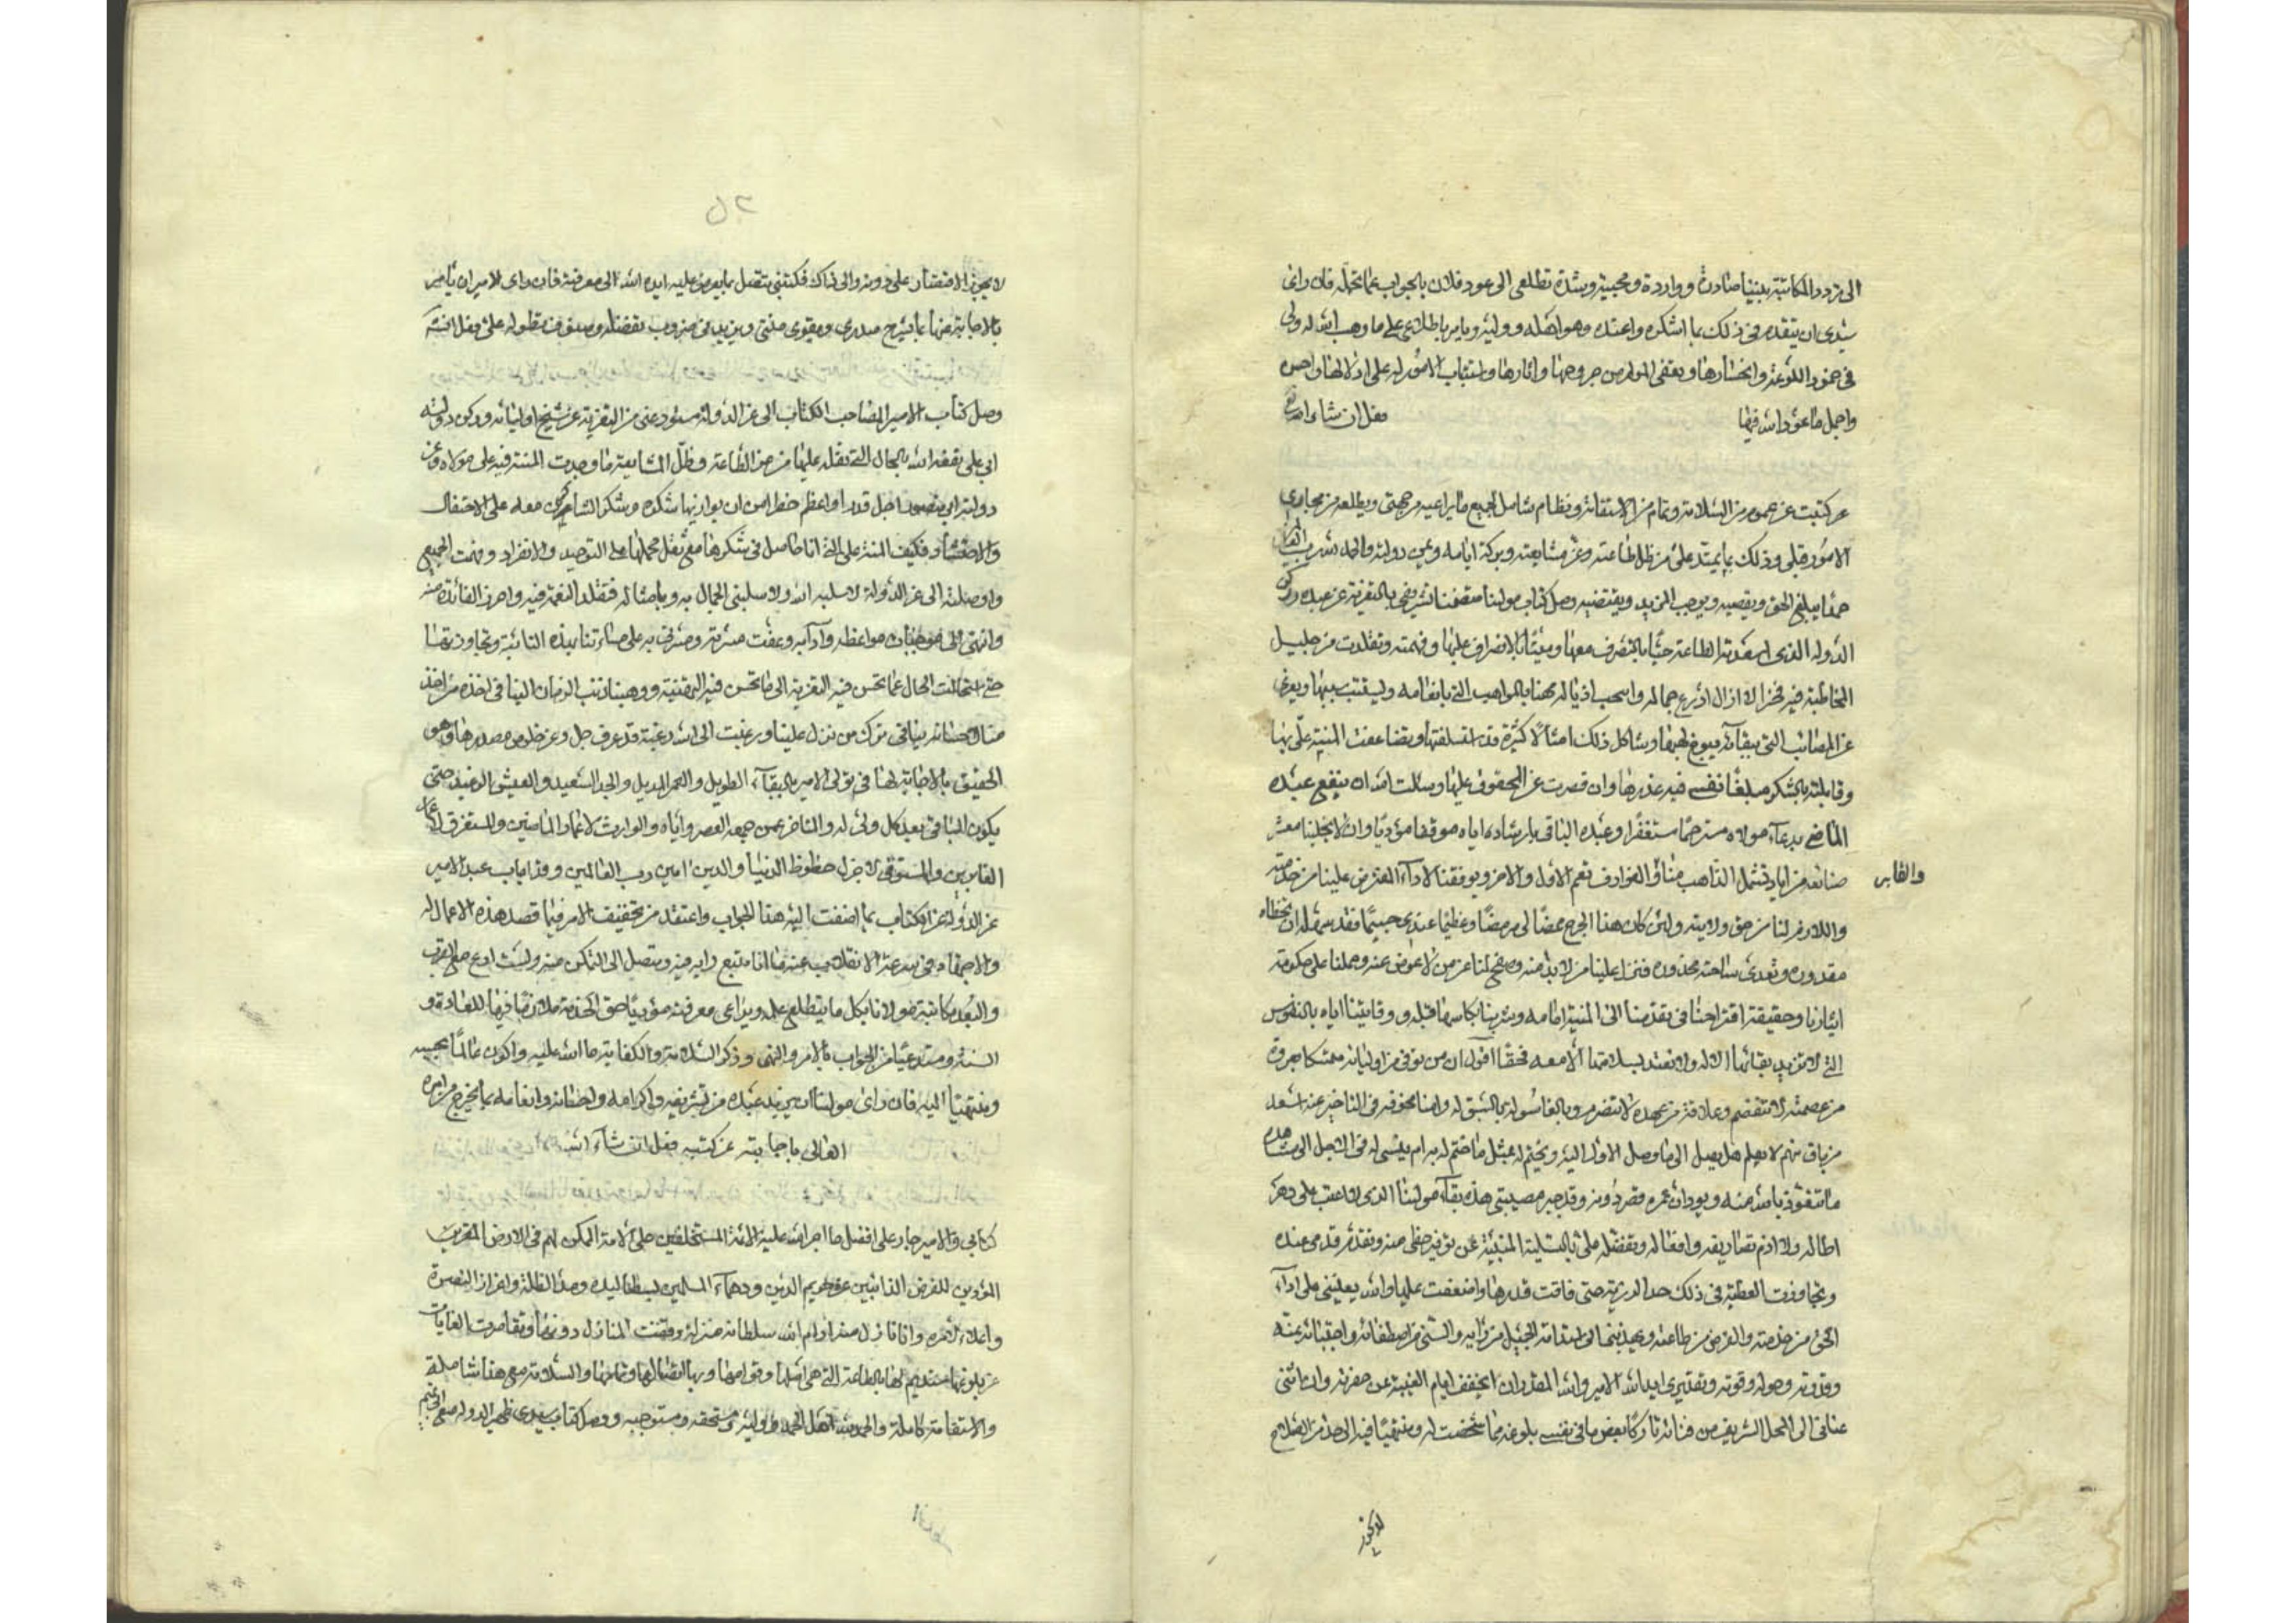 الى تردد المكاتبة بيننا صادرة وواردة ومجيبة وشدة تطلعى الى عود فلان بالجواب عما تحمله فان راى
سيدى ان يتقدم فى ذلك بما اشكره واعتده وهو اهله ووليه ويامر باطلاعى على ما وهب الله له ولى
فى خمود اللوعة وانحسارها وتعفى المولد من جروحها واثارها واستتباب الامور له على اذلالها واحسن
واجمل ما عود الله فيها فعل ان شاء الله تعالى
كتبت عن عموم من السلامة وتمام من الاستقامة ونظام شامل لجميع ما يراعيه من جهتى ويطلعه من مجارى
الامور قبلى وذلك بما يمتد على من ظل طاعته وعز مشايعته وبركة ايامه ويمن دولته والحمد لله رب العالمين
حمدا يبلغ الحق ويقضيه ويوجب المزيد ويقتضيه وصل كتاب مولينا متضمنا تشريفى بالتعزية عن عبده وركن
الدولة الذى اسعدته الطاعة حيا بالتصرف معها وميتا بالانصراف عليها وفهمته وتقلدت من جليل
المخاطبة فيه فخرا لا ازال ادرع جماله واسحب اذياله مهنا بالمواهب التى بانعامه
عن المصائب التى ببقائه يسوغ لهبها وشاكل ذلك امثالا كثيرة قد استسلفتها وتضاعفت المنية على بها
وقابلته بالشكر مبلغا نفسى فيه عذرها وان قصرت عن الحقوق عليها وسالت الله ان ينفع عبده
الماضى بدعاء مولاه مترحما مستغفرا وعبده الباقى بارشاده اياه موفقا مؤديا وان لا يخلينا معشر
صنائعه من اياد تشمل الذاهب منا والغابر وعوارف تعم الاول والاخر ويوفقنا لاداء المفترض علينا من خدمته
واللازم لنا من حق ولايته ولئن كان هذا الجرح ممضا لى مرمضا وعظيما عندى جسيما فقد سهله ان تخطاه
مقدوره وتعدى ساحته محذوره فنزل علينا من لا بد منه وصفح لنا عن من لا عوض عنه وحملنا على حكومة
ايثارنا وحقيقة اقتراحنا فى تقدمنا الى المنية امامه وشربنا بكاسها قبله ووقايتنا اياه بالنفوس
التى لا نريد بقائها الا له ولا نعتد بسلامتها الا معه فحقا اقول ان من توفى من اوليائه متمسكا بعروة
من عصمته لا تنفصم وعلاقة من عهده لا تنصرم وبالغا سوله بالسبق له وامنا مخوفه فى التاخير عنه اسعد
من باق منهم لا يعلم هل يصل الى ما وصل الاول اليه ويختم له بمثل ما ختم له به ام ينسى له فى الاجل الى مشاهدة
ما نتعوذ بالله منه ويود ان عمره قصر دونه وقد جبر مصيبتى هذه بقاء مولينا الذى لا اعتب على دهر
اطاله ولا اذم تصاريفه وافعاله وتفضله على بالتسلية المنبئة عن توفير حظى منه وتقدم قدمى عنده
وتجاوزت العطية فى ذلك حد الرزية حتى فاقت قدرها واضعفت عليها والله يعيننى على اداء
الحق من خدمته والفرض من طاعته
وقدرته وحوله وقوته وتقديرى ايد الله الامير والله المقدر ان اخفف ايام الغيبة عن حضرته وان اثنى
عنانى الى المحل الشريف من فنائه تاركا بعض ما فى نفسى بلوغه مما شخصت له ومنتهيا فيه الى حد من الصلاح
والغابر
لا يجوز
٢٥
لا يجوز الاقتصار على دونه والى ذاك فكتبى تتصل بما يعرض عليه ايده الله الى معرفته فان راى الامير ان يامر
بالاجابة عنها بما يشرح صدرى ويقوى منتى ويزيد فى ضروب تفضله وصنوف تطوله على فعل انشاء الله
وصل كتاب الامير المضاحب الكتاب الى عز الدولة مستودعى من التعزية عن شيخ اوليائه وركن دولته
ابى على نفعه الله بالحال التى نقله عليها من عز الطاعة وظل المشايعة ما وجدت المنة فيه على مولاه وعز
دولته ابى منصور اجل قدرا واعظم خطرا من ان يوازيها شكره وشكر الشاكرين معه على الاحتفال
والاحتشاد فكيف المنة على التى انا حاصل فى شكرها مع ثقل محملها على التوحيد والانفراد وفهمت الجميع
واوصلته الى عز الدولة لا سلبه الله ولا سلبنى الجمال به وبامثاله فتقلد النعمة فيه واحرز الفائدة منه
وانتهى الى موجبات مواعظه وآدابه وعفت مسرته ومسرتى به على مساءتنا بهذه النائبة وتجاوزتها
حتى استحالت الحال عما تحسن فيه التعزية الى ما تحسن فيه التهنية ووهبنا ذنب الزمان الينا فى اخذه من اخذ
منا لاحسانه بنا فى ترك من نزل علينا ورغبت الى الله رغبة قد عرف جل وعز خلوص مصدرها وهو
الحقيق بالاجابة لها فى تولى الامير بالبقاء الطويل والعمر المديد والجد السعيد والعيش الرغيد حتى
يكون الباقى بعد كل ولى له والمتاخر عمن جمعه العصر واياه والوارث لاعمار الماضين والمستغرق لاعمار
الغابرين والمستوفى لاجزل حظوظ الدنيا والدين امين رب العالمين وهذا باب عبد الامير
عز الدولة عن الكتاب بما اضفت اليه هذا الجواب واعتقد من تخفيف الامر فيما قصد هذه الاعمال له
والاجتهاد فى سرعة الانقلاب عنه ما انا متبع رايه فيه ومتصل الى التمكن منه ولست ادع مع القرب
والبعد مكاتبة مولانا بكل ما يتطلع علمه ويراعى معرفته مؤديا حق الخدمة ملازما فيها للعادة و
السنة ومستدعيا من الجواب بالامر والنهى وذكر السلامة والكفاية ما الله عليه واكون عالما بجميعه
ومنتهيا اليه فان راى مولينا ان يزيد عبده من تشريفه واكرامه واحسانه وانعامه بما يخرج من امره
العالى باجابته عن كتبه فعل انشاء الله
كتابى والامير جار على افضل ما اجرى الله عليه الائمة المستخلفين على الامة الممكن لهم فى الارض المقربين
المؤدين للفرض الذابين عن حريم الدين ودهماء المسلمين لبسط اليد ومد الظلة واعزاز النصرة
واعلاء الامره وانا نازل منه ادام الله سلطانه منزلة وقفت المنازل دونها وتقاصرت الغايات
عن بلوغها مستديم لها بالطاعة التى هى اسها وقوامها وبها اتصالها وتمامها والسلامة مع هذا شاملة
والاستقامة كاملة والحمد لله اهل الحمد ووليه ومستحقه ومستوجبه ووصل كتاب سيدى ظهير الدولة